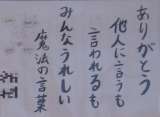 ありがとう
他人に言うも
言われるも
みんなうれしい
魔法の言葉